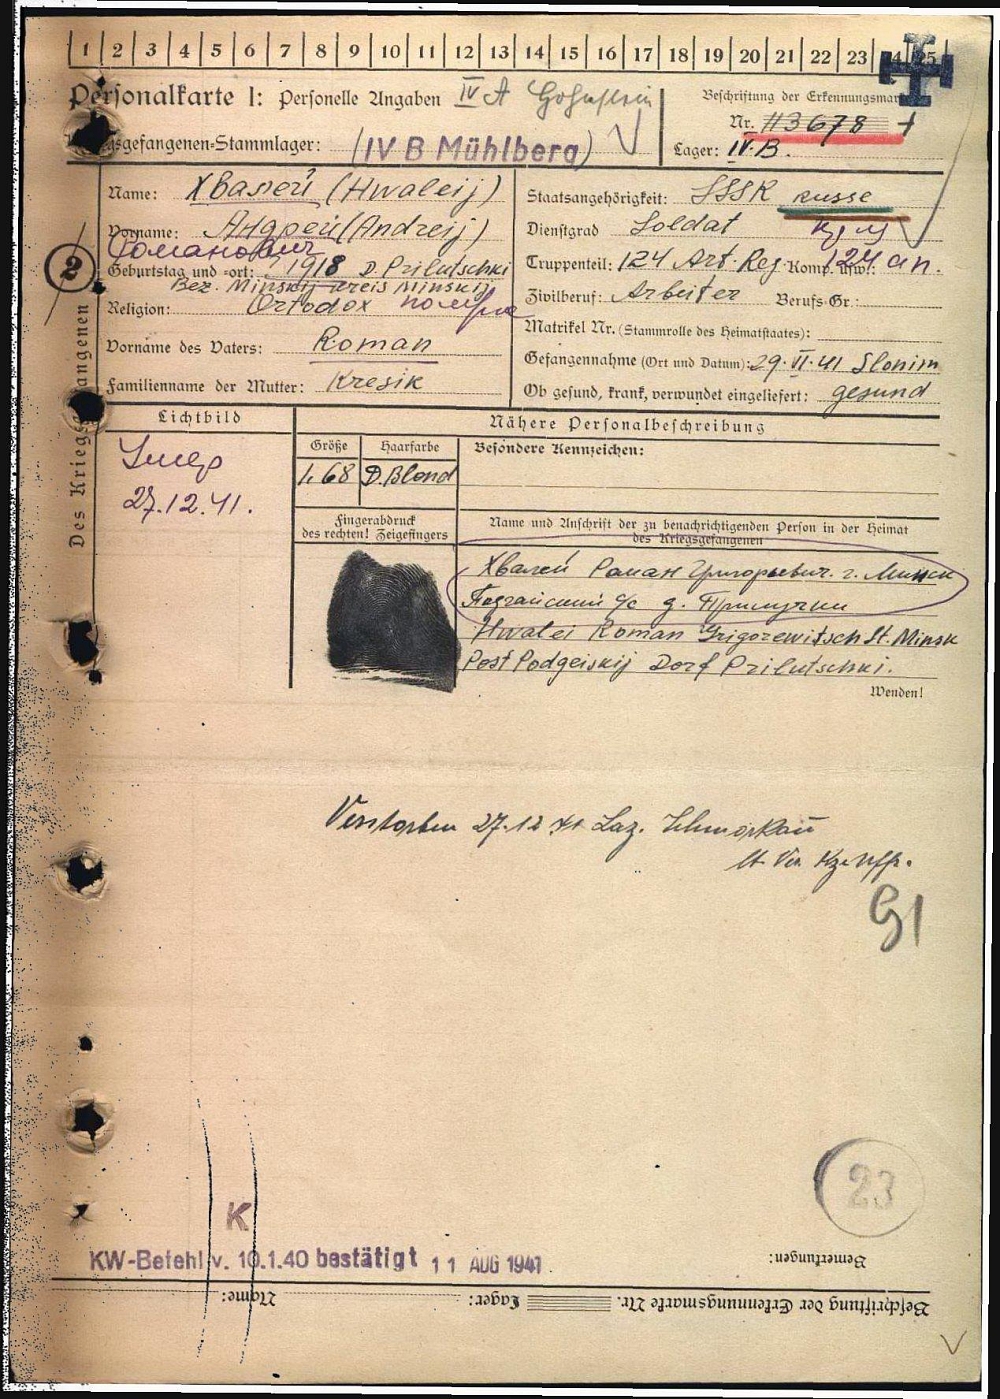 1 2 3 4 5 6 7 8 9 10 11 12 13 14 15 16 17 18 19 20 21 22 23 24 25
Personalkarte I: Personelle Angaben IV A Hohnstein
Kriegsgefangenen-Stammlager: IV B Mühlberg
Beschriftung der Erkennungsmarke
Nr. 113678
Lager: IV. B.
Des Kriegsgefangenen
2
Name: Хвалей (Hwaleij)
Vorname: Андрей (Andreij)
Романович
Geburtstag und -ort: 1918 D. Prilutschki
Bez. Minskij Kreis Minskij
Religion: Ortodox
Vorname des Vaters: Roman
Familienname der Mutter: Kresik
Staatsangehörigkeit: SSSR russe
Dienstgrad Soldat
Truppenteil: 124 Art. Reg. Komp. usw.: 124 ап.
Zivilberuf: Arbeiter Berufs-Gr.:
Matrikel Nr. (Stammrolle des Heimatstaates):
Gefangennahme (Ort und Datum): 29. VI. 41 Slonim
Ob gesund, krank, verwundet eingeliefert: gesund
Lichtbild
Умер
27.12.41.
Nähere Personalbeschreibung
Größe Haarfarbe Besondere Kennzeichen:
1.68 D. Blond
Fingerabdruck
des rechten! Zeigefingers
Name und Anschrift der zu benachrichtigenden Person in der Heimat
des Kriegsgefangenen
Хвалей Роман Григорьевич. г. Минск
с/с д. Прилучки
Hwalei Roman Grigorewitsch St. Minsk
Post Podgeiskij Dorf Prilutschki.
Wenden!
Verstorben 27.12 41 Laz. Schmorkau
G1
23
K
KW-Befehl v. 10.1.40 bestätigt 11 AUG 1941
Bemerkungen:
Beschriftung der Erkennungsmarke Nr. Lager: Name: